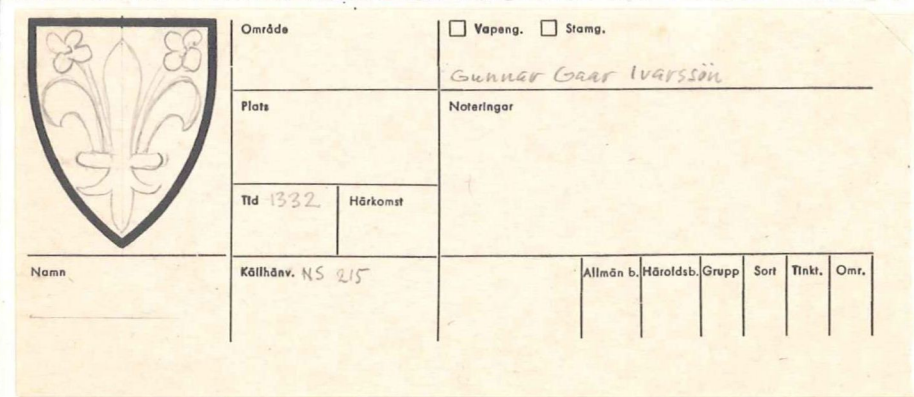 Område
Vapeng. Stamg.
Gunnar Gaar Ivarssön
Plats
Noteringar
Tid 1332
Härkomst
Namn
Källhänv. NS 215
Allmän b. Häroldsb. Grupp Sort Tinkt. Omr.